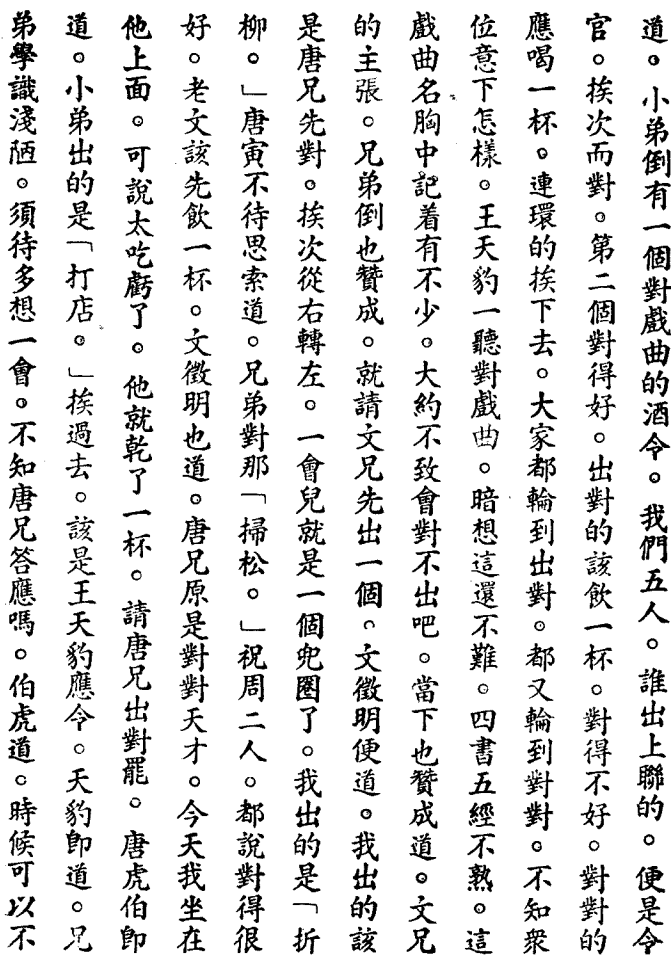 道。小弟倒有一個對戲曲的酒令。我們五人。誰出上聯的。便是令
官。挨次而對。第二個對得好。出對的該飲一杯。對得不好。對對的
應喝一杯。連環的挨下去。大家都輪到出對。都又輪到對對。不知衆
位意下怎樣。王天豹一聽對戲曲。暗想這還不難。四書五經不熟。這
戲曲名胸中記着有不少。大約不致會對不出吧。當下也贊成道。文兄
的主張。兄弟倒也贊成。就請文兄先出一個。文徵明便道。我出的該
是唐兄先對。挨次從右轉左。一會兒就是一個兜圈了。我出的是「折
柳。」唐寅不待思索道。兄弟對那「掃松。」祝周二人。都說對得很
好。老文該先飲一杯。文徵明也道。唐兄原是對對天才。今天我坐在
他上面。可說太吃虧了。他就乾了一杯。請唐兄出對罷。唐虎伯卽
道。小弟出的是「打店。」挨過去。該是王天豹應令。天豹卽道。兄
弟學識淺陋。須待多想一會。不知唐兄答應嗎。伯虎道。時候可以不